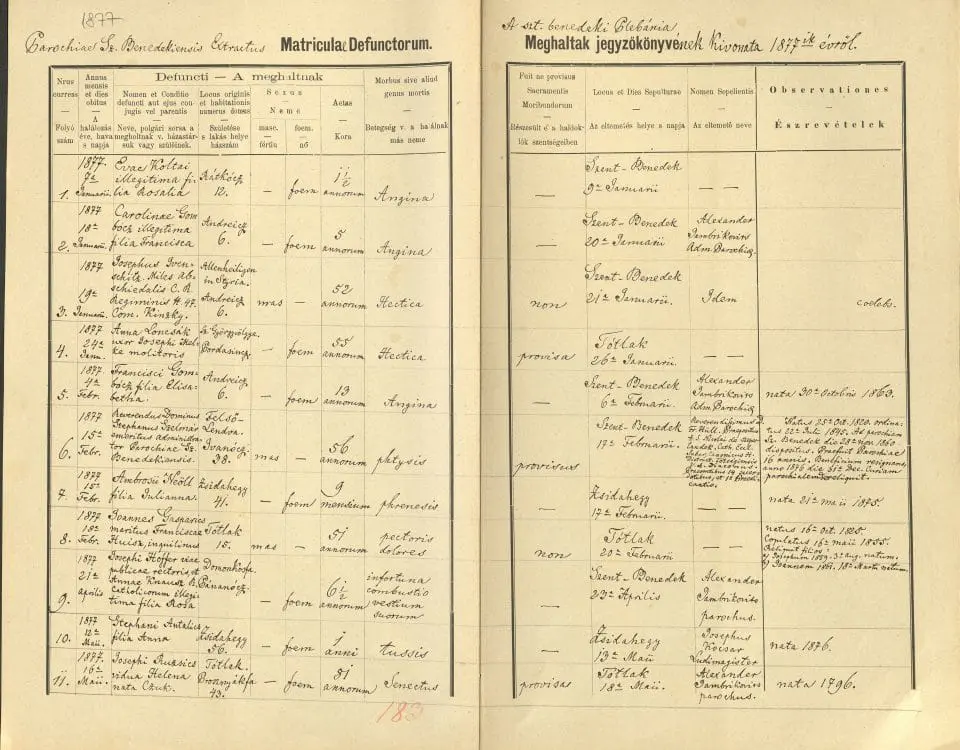 1877
Parochiae Sz. Benedekiensis Extractus Matricula Defunctorum.
A szt. benedeki Plebánia
Meghaltak jegyzőkönyvének kivonata 1877ik évről.
Nrus currens
Folyó szám
Annus mensis et dies obitus
A halálozás éve, hava s napja
Defuncti — A meghaltnak
Nomen et Conditio defuncti aut ejus conjugis vel parentis
Neve, polgári sorsa a megholtnak v. házastársuk vagy szülőinek.
Locus originis et habitationis numerus domus
Születése s lakás helye házszám
Sexus
Neme
masc.
férfiu
foem.
nő
Aetas
Kora
Morbus sive aliud genus mortis
Betegség v. a halálnak más neme
Fuit ne provisus Sacramentis Moribundorum
Részesült é a haldoklók szentségeiben
Locus et Dies Sepulturae
Az eltemetés helye s napja
Nomen Sepelientis
Az eltemető neve
Observationes
Észrevételek
1.
1877.
7a
Januarii
Evae Koltai
illegitima fi-
lia Rosalia
Rátkócz
12.
—
foem
1 1/2
annorum
Angina
—
Szent-Benedek
9a Januarii
— —
2.
1877
18a
Januarii.
Carolinae Gom
bócz illegitima
filia Francisca
Andreicz
6.
—
foem
5
annorum
Angina
—
Szent-Benedek
20a Januarii
Alexander
Jambrikovits
Adm. Parochiae
3.
1877
19a
Januarii.
Josephus
Miles ab-
schiedatis C. R.
Regiminis N. 47.
Com. Kinzky.
Allenheiligen
in Styria.
Andreicz
6.
mas
—
52
annorum
Hectica
non
Szent-Benedek
21a Januarii.
Idem
coelebs.
4.
1877
24a
Janu.
Anna Loncsák
uxor Josephi
molitoris
—
foem
55
annorum
Hectica
provisa
Tótlak
26a Januarii.
— —
5.
1877
4a
Febr.
Francisci Gom
bócz filia Elisa-
betha.
Andreicz
6.
—
foem
13
annorum
Angina
—
Szent-Benedek
6a Februarii.
Alexander
Jambrikovits
Adm. Parochiae
nata 30a Octobris 1863.
6.
1877
15a
Febr.
Reverendus Dominus
Stephanus
emeritus administra-
tor Parochiae Sz.
Benedekiensis.
Felső-
Lendva.
Ivanócz
38.
mas
—
56
annorum
phtysis
provisus
Szent-Benedek
17a Februarii.
Reverendissimus D.
Natus 25a Oct. 1820. ordina-
tus 22a Julii 1845. Ad parochiam
Sz. Benedek die 28a nov. 1860
dispositus. Praefuit Parochiae
16 annis.
anno 1876 die 31a Dec. Curiam
parochialem reliquit.
7.
1877
15a
Febr.
Ambrosii
filia Julianna.
Zsidahegy
41.
—
foem
9
mensium
phrenesis
—
Zsidahegy
17a Februarii.
— —
nata 21a maii 1875.
8.
1877
18a
Febr.
Joannes Gasparics
maritus Franciscae
Huisz, inquilinus
Tótlak
15.
mas
—
51
annorum
pectoris
dolores
non
Tótlak
20a Februarii
— —
natus 16a Oct. 1825.
Copulatus 16a maii 1855.
Reliquit filios:
a) Josephum 1859. 31a aug. natum.
b) Joannem 1861. 18a Martii natum.
9.
1877
21a
aprilis
Josephi Hoffer viae
publicae
Annae Knausz R.
Catholicorum illegi-
tima filia Rosa
Domonkosfa.
Pánanócz.
—
foem
6 1/2
annorum
infortuna
combustio
vestium
suorum
—
Szent-Benedek
23a Aprilis
Alexander
Jambrikovits
parochus.
10.
1877
12a
Maii.
Stephani
filia Anna
Zsidahegy
56.
—
foem
1
anni
tussis
—
Zsidahegy
13a Maii
Josephus
Kocsar
Ludimagister
nata 1876.
11.
1877.
16a
Maii.
Josephi Ruzsics
vidua Helena
nata Czuk.
Tótlak.
43.
—
foem
81
annorum
Senectus
provisas
Tótlak
18a Maii.
Alexander
Jambrikovits
parochus.
nata 1796.
183